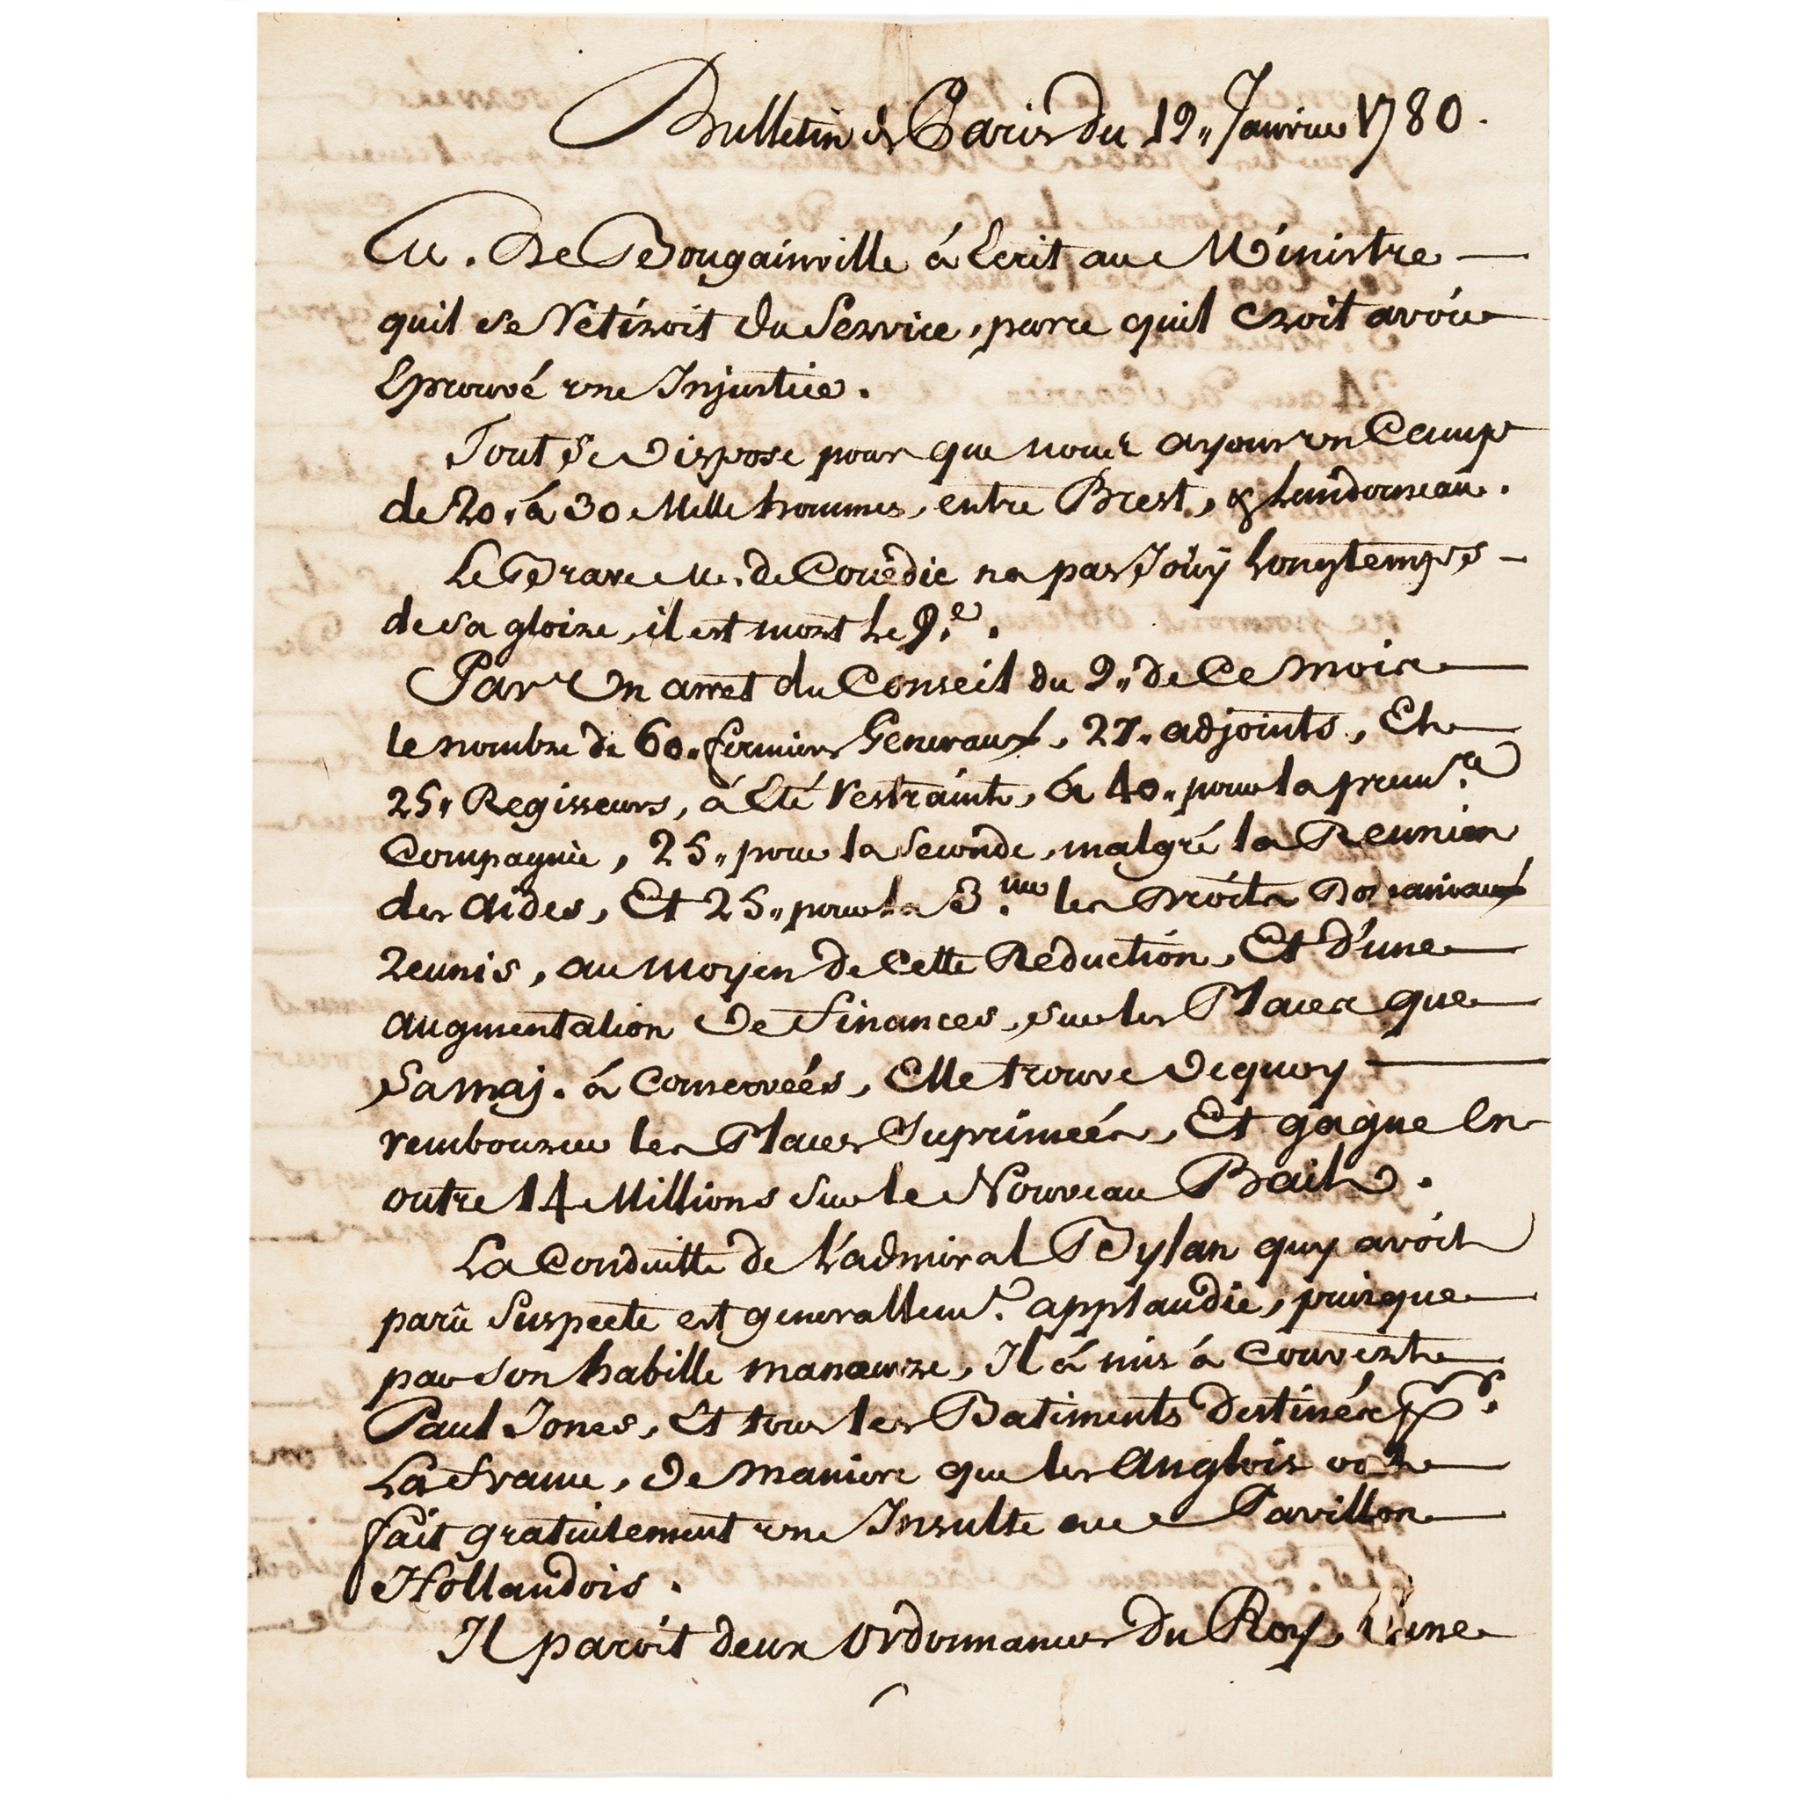 Bulletin de Paris du 19,, Janvier 1780.
M. De Bougainville á Ecrit au Ministre
quil se Retiroit du Service, parce quil croit avoir
Eprouvé une Injustice.
Tout se dispose pour que nous ayons un Camp
de 20. á 30 Mille hommes, entre Brest, & Landerneau.
Le Brave M. de Couëdic na pas Joüy Longtemps
de sa gloire, il est mort Le 9.e.
Par Un arret du Conseil du 9,, de Ce mois
le nombre de 60,, fermiers Generaux, 27,, adjoints, Et
25,, Regisseurs, á Eté restraint, á 40,, pour la prem.re
Compagnie, 25,, pour la Seconde, malgré la Reunion
des aides, Et 25,, pour la 3.me les Droits Domaniaux
reunis, au moyen de Cette Reduction, Et d'une
augmentation de finances, sur les Places que
Sa maj. á Conservées, Elle trouve dequoy
rembourser les Places Supriméés, Et gagne En
outre 14 Millions sur le Nouveau Bail.
La Conduitte de L'admiral Bylan quy avoit
parû Suspecte est generallem.t applaudie, puisque
par son habille manœuvre, Il á mis á Couvert
Paul Jones, Et tous les Batiments destinés p.r
La france, de maniere que les anglois ont
fait gratuitement une Insulte au Pavillon
Hollandois.
Il paroit deux Ordonnances du Roy, L'une